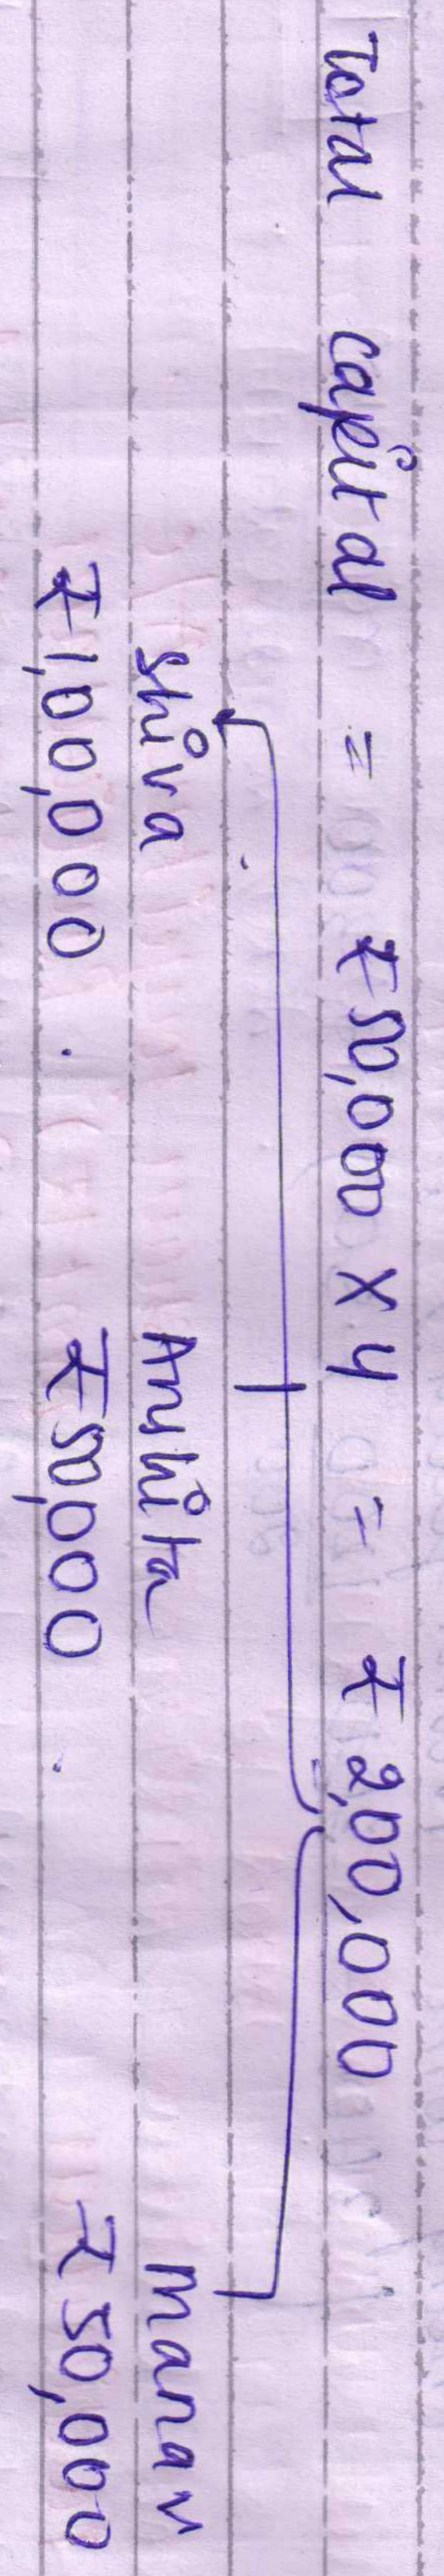 Total capital = ₹50,000 x 4 = ₹2,00,000
Shiva Anshita Manav
₹1,00,000 ₹50,000 ₹50,000